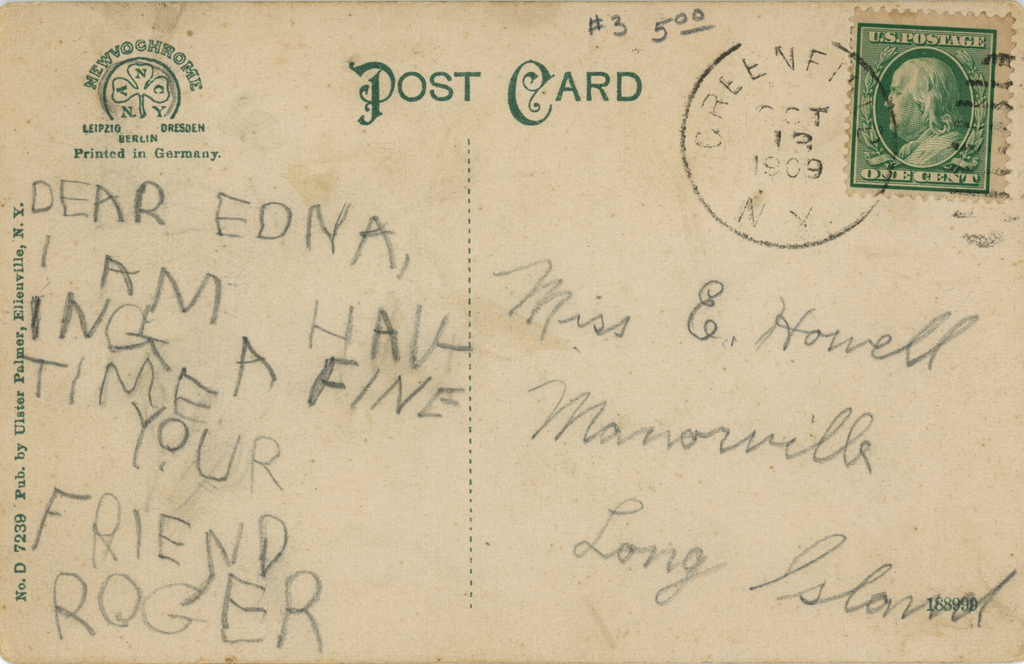 #3 5.00
NEWVOCHROME
N
A N C Y
LEIPZIG DRESDEN
BERLIN
Printed in Germany.
POST CARD
GREENFI
OCT
12
1909
N.Y.
U.S. POSTAGE
ONE CENT
No. D 7239 Pub. by Ulster Palmer, Ellenville, N. Y.
DEAR EDNA,
I AM HAV
ING A FINE
TIME
YOUR
FRIEND
ROGER
Miss E. Howell
Manorville
Long Island